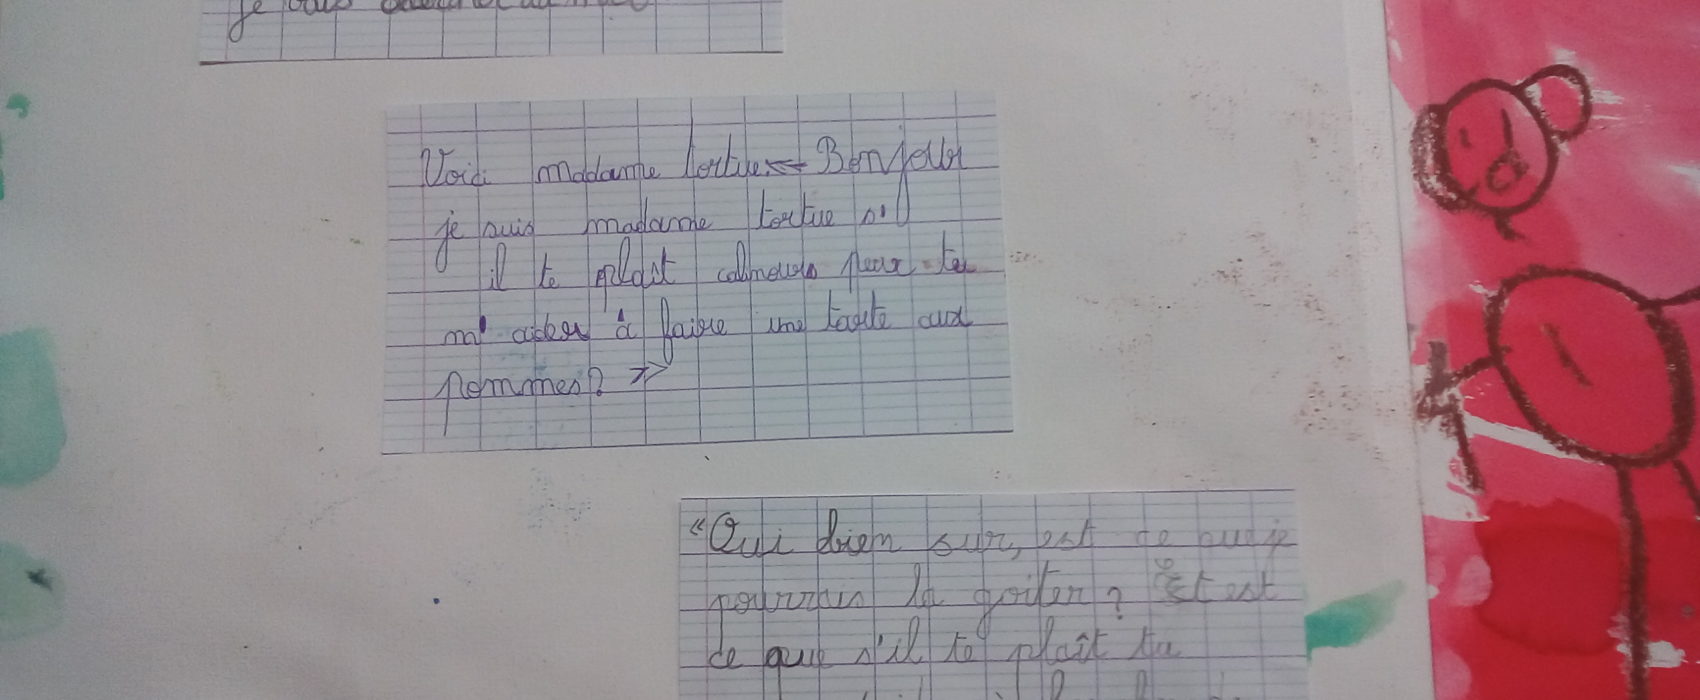 je vous
Voici madame tortue << Bonjour
je suis madame tortue s'il
il te plait peux tu
m' aider à faire une tarte aux
pommes? >>
"Oui bien sur, est ce que je
pourrais la goiter? Et est
ce que s'il te plaît tu